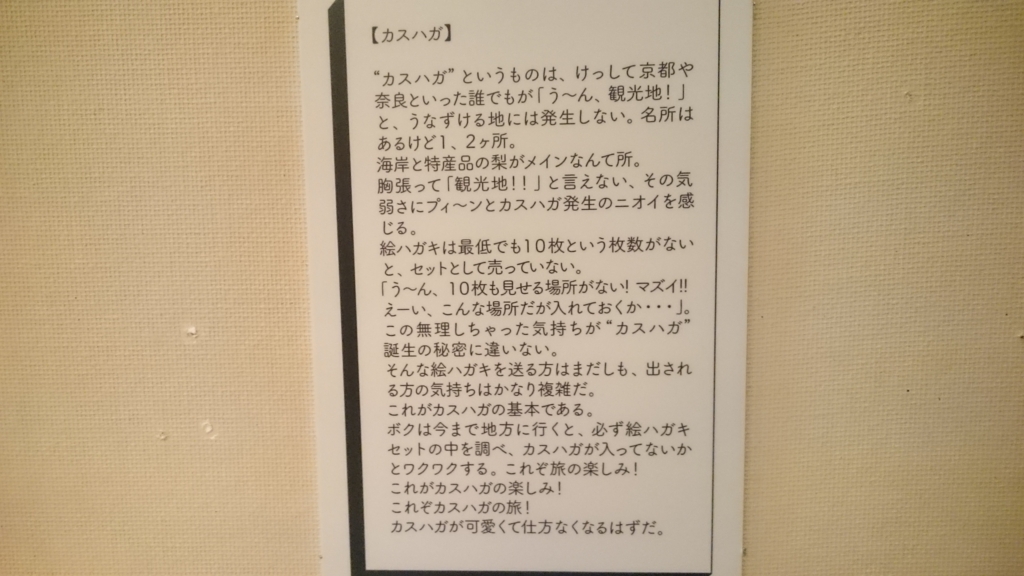 【カスハガ】
“カスハガ”というものは、けっして京都や
奈良といった誰でもが「う〜ん、観光地！」
と、うなずける地には発生しない。名所は
あるけど1、2ヶ所。
海岸と特産品の梨がメインなんて所。
胸張って「観光地！！」と言えない、その気
弱さにプィ〜ンとカスハガ発生のニオイを感
じる。
絵ハガキは最低でも10枚という枚数がない
と、セットとして売っていない。
「う〜ん、10枚も見せる場所がない！マズイ!!
えーい、こんな場所だが入れておくか・・・」。
この無理しちゃった気持ちが“カスハガ”
誕生の秘密に違いない。
そんな絵ハガキを送る方はまだしも、出され
る方の気持ちはかなり複雑だ。
これがカスハガの基本である。
ボクは今まで地方に行くと、必ず絵ハガキ
セットの中を調べ、カスハガが入ってないか
とワクワクする。これぞ旅の楽しみ！
これがカスハガの楽しみ！
これぞカスハガの旅！
カスハガが可愛くて仕方なくなるはずだ。